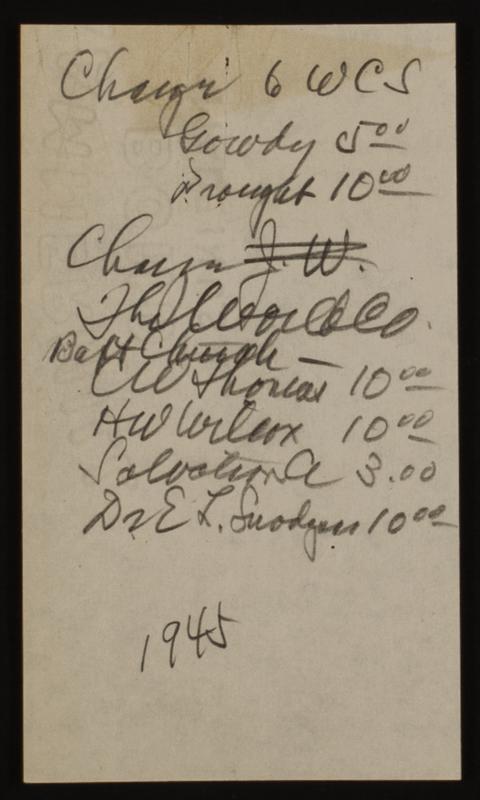 Charge 6 WCS
Gowdy 5.00
Drought 10.00
Charge J. W.
The World Co.
Bapt Church —
CW Thomas 10.00
HW Wilcox 10.00
Salvation A 3.00
Dr E L. Snodgrass 10.00
1945